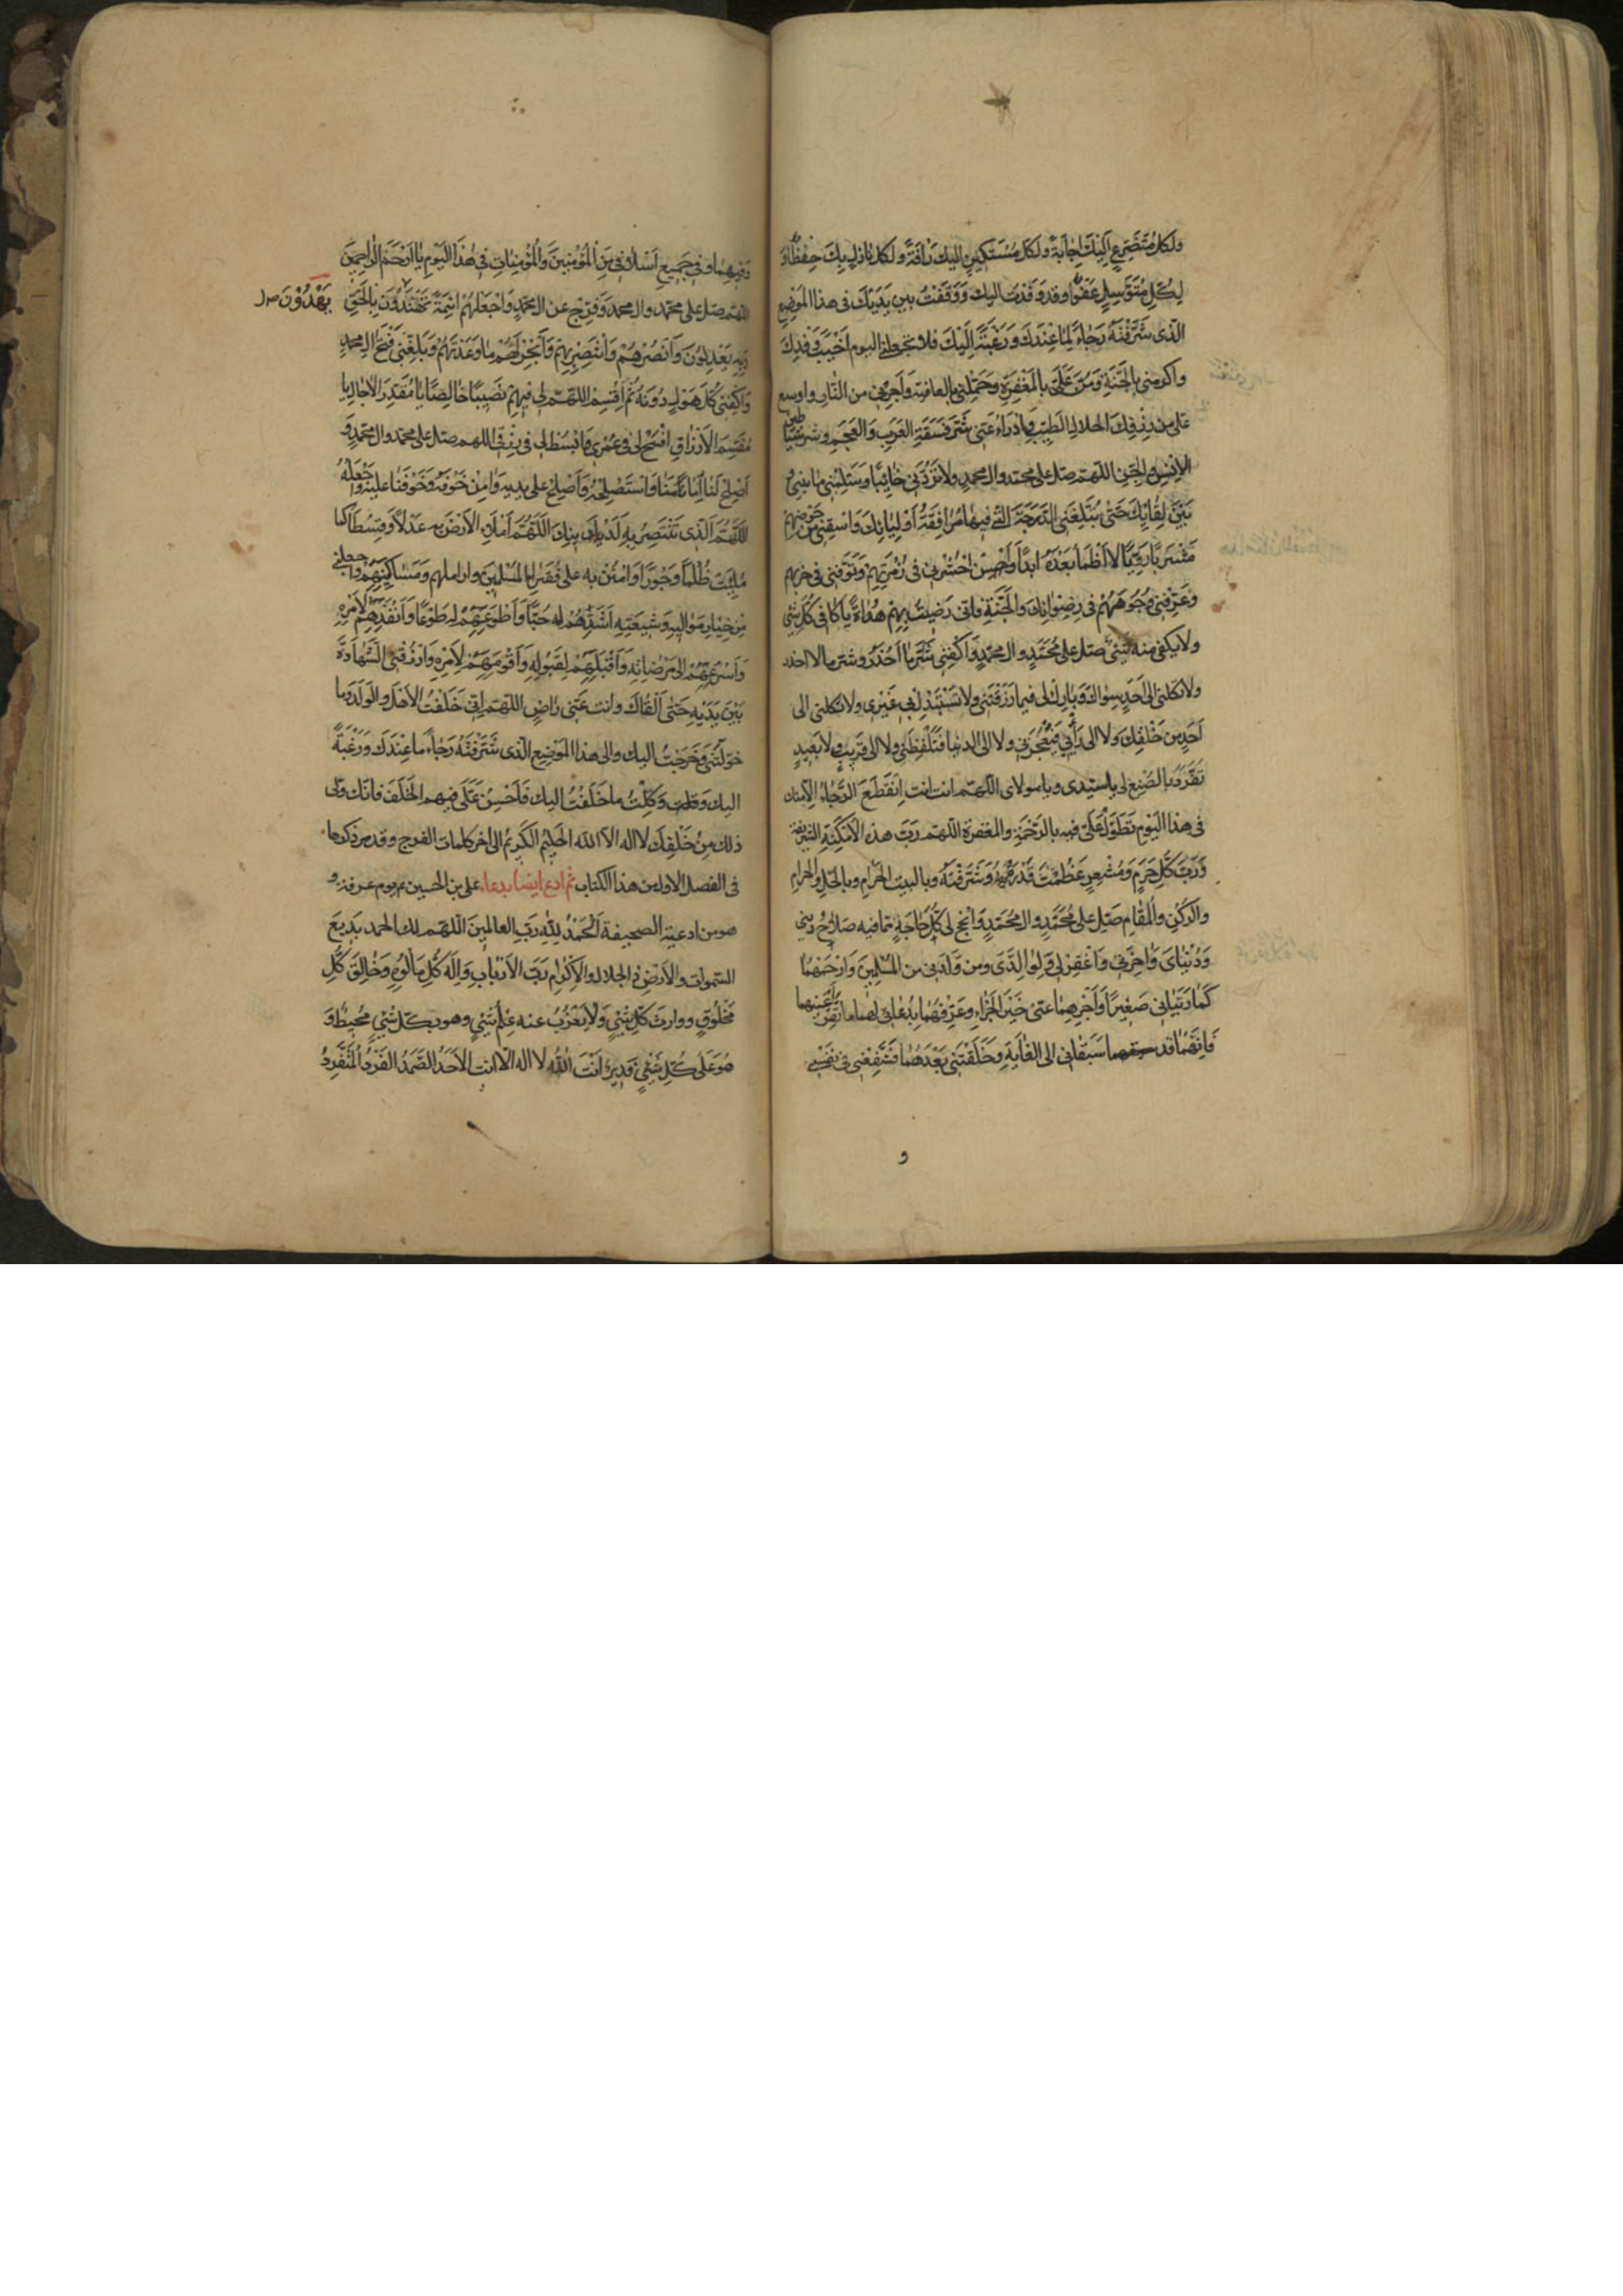 ولكل متضرع اليك اجابة ولكل مستكين اليك رأفة ولكل نازل بك حفظا و
لكل متوسل عفوا وقد وفدت اليك ووقفت بين يديك في هذا الموضع
الذي شرفته رجاء لما عندك ورغبة اليك فلا تجعلني اليوم اخيب وفدك
واكرمني بالجنة ومن علي بالمغفرة وجملني بالعافية واجرني من النار واوسع
علي من رزقك الحلال الطيب وادرأ عني شر فسقة العرب والعجم وشر شياطين
الانس والجن اللهم صل على محمد وال محمد ولا تردني خائبا وسلمني ما بيني و
بين لقائك حتى تبلغني الدرجة التي فيها مرافقة اوليائك واسقني من حوضهم
مشربا رويا لا اظمأ بعده ابدا واحشرني في زمرتهم وتوفني في حزبهم
وعرفني وجوههم في رضوانك والجنة فاني رضيت بهم هداة يا كافي كل شيء
ولا يكفي منه شيء صل على محمد وال محمد واكفني شر ما احذر وشر ما لا احذر
ولا تكلني الى احد سواك وبارك لي فيما رزقتني ولا تستبدل بي غيري ولا تكلني الى
احد من خلقك ولا الى رأيي فيعجزني ولا الى الدنيا فتلفظني ولا الى قريب ولا بعيد
تفرد بالصنع لي يا سيدي ويا مولاي اللهم انت انت انقطع الرجاء الا منك
في هذا اليوم تطول علي فيه بالرحمة والمغفرة اللهم رب هذه الامكنة الشريفة
ورب كل حرم ومشعر عظمت قدره وشرفته وبالبيت الحرام وبالحل والحرام
والركن والمقام صل على محمد وال محمد وانجح لي كل حاجة مما فيه صلاح ديني
ودنياي واخرتي واغفر لي ولوالدي ومن ولدني من المسلمين وارحمهما
كما ربياني صغيرا واجزهما عني خير الجزاء وعرفهما بدعائي لهما ما تقر اعينهما
فانهما قد سبقاني الى الغاية وخلفتني بعدهما فشفعني في نفسي
و
وفيهما وفي جميع اسلافي من المؤمنين والمؤمنات في هذا اليوم يا ارحم الراحمين
اللهم صل على محمد وال محمد وفرج عن ال محمد واجعلهم ائمة يهتدون بالحق
يهدون صل
وبه يعدلون وانصرهم وانتصر بهم وانجز لهم ما وعدتهم وبلغني فتح ال محمد
واكفني كل هول دونه ثم اقسم اللهم لي فيهم نصيبا خالصا يا مقدر الاجال يا
مقسم الارزاق افسح لي في عمري وابسط لي في رزقي اللهم صل على محمد وال محمد و
اصلح لنا امامنا واستصلحه واصلح على يديه وامن خوفه وخوفنا عليه واجعله
اللهم الذي تنتصر به لدينك اللهم املأ الارض به عدلا وقسطا كما
ملئت ظلما وجورا وامنن به على فقراء المسلمين واراملهم ومساكينهم واجعلني
من خيار مواليه وشيعته اشدهم له حبا واطوعهم له طوعا وانفذهم لامره
واسرعهم الى مرضاته واقبلهم لقبوله واقومهم لامره وارزقني الشهادة
بين يديه حتى القاك وانت عني راض اللهم اني خلفت الاهل والولد وما
خولتني وخرجت اليك والى هذا الموضع الذي شرفته رجاء ما عندك ورغبة
اليك ووكلت ما خلفت اليك فاحسن علي فيهم الخلف فانك ولي
ذلك من خلقك لا اله الا الله الحليم الكريم الى اخر كلمات الفرج وقد مر ذكرها
في الفصل الاول من هذا الكتاب ثم ادع ايضا بدعاء علي بن الحسين ع يوم عرفة و
هو من ادعية الصحيفة الحمد لله رب العالمين اللهم لك الحمد بديع
السموات والارض ذا الجلال والاكرام رب الارباب واله كل مألوه وخالق كل
مخلوق ووارث كل شيء ولا يعزب عنه علم شيء وهو بكل شيء محيط و
هو على كل شيء قدير انت الله لا اله الا انت الاحد الصمد الفرد المتفرد